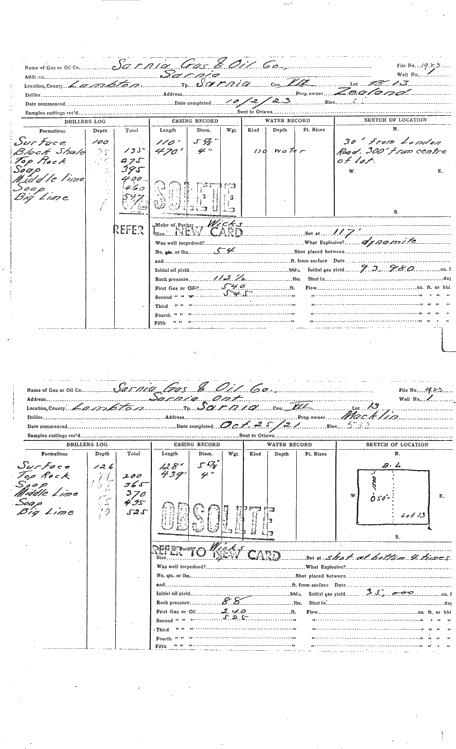 Name of Gas or Oil Co. Sarnia Gas & Oil Co. File No. 1923
Address Sarnia Well No.
Location, County Lambton Tp. Sarnia Con. VII Lot 13
Driller Address Prop. owner Zealand
Date commenced Date completed 10/2/23 Elev.
Samples cuttings rec'd. Sent to Ottawa
DRILLERS LOG CASING RECORD WATER RECORD SKETCH OF LOCATION
Formations Depth Total Length Diam. Wgt. Kind Depth Pt. Rises N.
Surface 100 110' 4" no water 30' from London
Black Shale 35 135 470' Road. 300' from centre
Top Rock 275 of lot.
Soap 395 W. E.
Middle lime 400
Soap 460
Big Lime
OBSOLETE
S.
REFER NEW CARD
Make of Packer Wicks
Size Set at 117'
Was well torpedoed? What Explosive? dynamite
No. qts. or lbs. 54 Shot placed between
and ft. from surface Date
Initial oil yield bbls. Initial gas yield 93,980 cu. f
Rock pressure 112½ lbs. Shut in day
First Gas or Oil 540 ft. Flow cu. ft. or bbl
Second " " 545 " " " " "
Third " " " " " " "
Fourth " " " " " " "
Fifth " " " " " " "
Name of Gas or Oil Co. Sarnia Gas & Oil Co. File No. 1923
Address Sarnia Ont Well No. 1
Location, County Lambton Tp. Sarnia Con. VII Lot 13
Driller Address Prop. owner Macklin
Date commenced Date completed Oct. 25/21 Elev.
Samples cuttings rec'd. Sent to Ottawa
DRILLERS LOG CASING RECORD WATER RECORD SKETCH OF LOCATION
Formations Depth Total Length Diam. Wgt. Kind Depth Pt. Rises N.
Surface 126 128'
Top Rock 200 439' 4"
Soap 365
Middle Lime 370
Soap 495
Big Lime 525
B.L
W. E.
Lot 13
S.
OBSOLETE
REFER TO NEW CARD
Wicks
Size Set at shot at bottom 4 times
Was well torpedoed? What Explosive?
No. qts. or lbs. Shot placed between
and ft. from surface Date
Initial oil yield bbls. Initial gas yield 35,000 cu. f
Rock pressure 88 lbs. Shut in day
First Gas or Oil 240 ft. Flow cu. ft. or bbl
Second " " 525 " " " " "
Third " " " " " " "
Fourth " " " " " " "
Fifth " " " " " " "